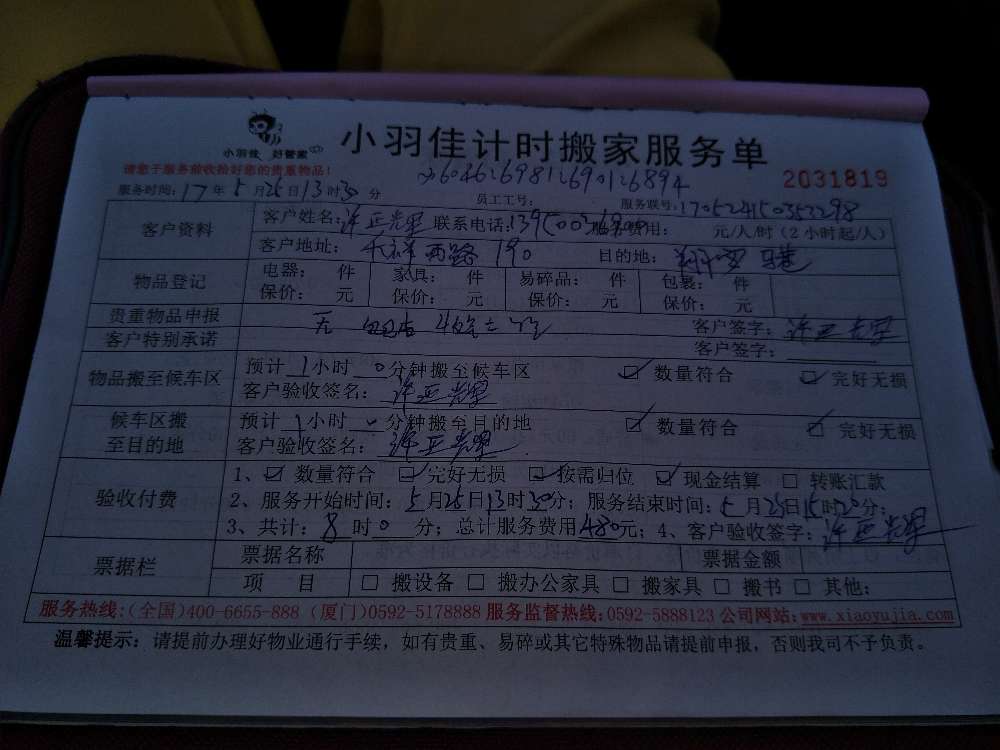 小羽佳 好管家
小羽佳计时搬家服务单
请您于服务前收拾好您的贵重物品!
2031819
服务时间:17年5月25日13时30分 员工工号: 服务联号:
客户资料 客户姓名: 联系电话: 服务费用: 元/人/时(2小时起/人)
客户地址: 西路190 目的地:
物品登记 电器: 件 家具: 件 易碎品: 件 包裹: 件
保价: 元 保价: 元 保价: 元 保价: 元
贵重物品申报 无 客户签字:
客户特别承诺 客户签字:
物品搬至候车区 预计1小时0分钟搬至候车区 ☑ 数量符合 ☑ 完好无损
客户验收签名:
候车区搬至目的地 预计1小时0分钟搬至目的地 ☑ 数量符合 ☑ 完好无损
客户验收签名:
验收付费 1、☑ 数量符合 ☑ 完好无损 ☑ 按需归位 ☑ 现金结算 □ 转账汇款
2、服务开始时间:5月25日13时30分;服务结束时间:5月25日15时分;
3、共计:8时0分;总计服务费用480元;4、客户验收签字:
票据栏 票据名称 票据金额
项 目 □ 搬设备 □ 搬办公家具 □ 搬家具 □ 搬书 □ 其他:
服务热线:(全国)400-6655-888 (厦门)0592-5178888 服务监督热线:0592-5888123 公司网站:www.xiaoyujia.com
温馨提示:请提前办理好物业通行手续,如有贵重、易碎或其它特殊物品请提前申报,否则我司不予负责。